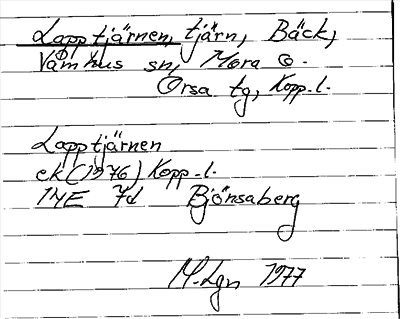 Lapptjärnen, tjärn, Bäck,
Våmhus sn, Mora o.
Orsa tg, Kopp.l.
Lapptjärnen
ek (1976) Kopp.l.
14E 7d Björnsaberg
M-Lgn 1977